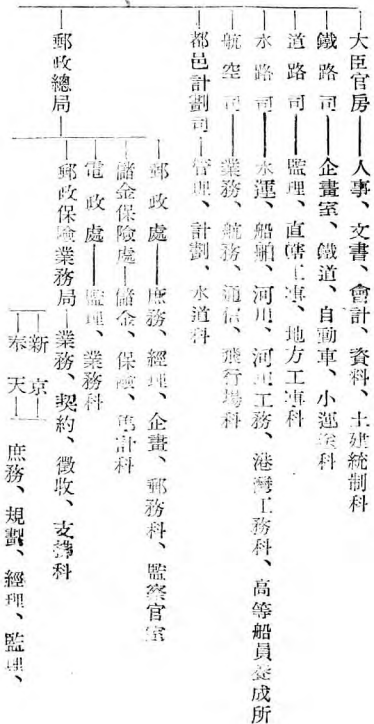 大臣官房——人事、文書、會計、資料、土建統制科
鐵路司——企畫室、鐵道、自動車、小運送科
道路司——監理、直轄工事、地方工事科
水路司——水運、船舶、河川、河川工務、港灣工務科、高等船員養成所
航空司——業務、航務、通信、飛行場科
都邑計劃司——管理、計劃、水道科
郵政總局
郵政處——庶務、經理、企畫、郵務科、監察官室
儲金保險處——儲金、保險、計科
電政處——監理、業務科
郵政保險業務局——業務、契約、徵收、支拂科
新京
奉天
庶務、規劃、經理、監理、